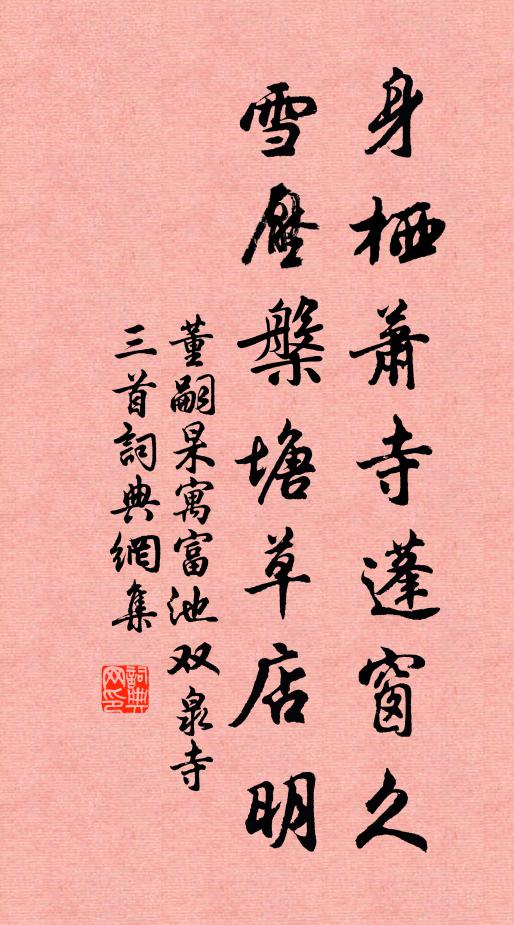 身栖萧寺蓬窗久
雪压槃塘草店明
董嗣杲寓富池双泉寺
三首詞典網集
詞典網印